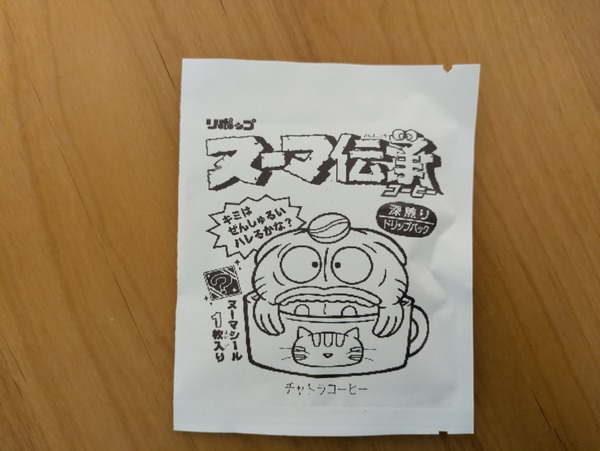 リポップ
スーマ伝承
コーヒー
深煎り
ドリップパック
キミは
ぜんしゅるい
ハレるかな?
?
スーマシール
1枚入り
チャトラコーヒー